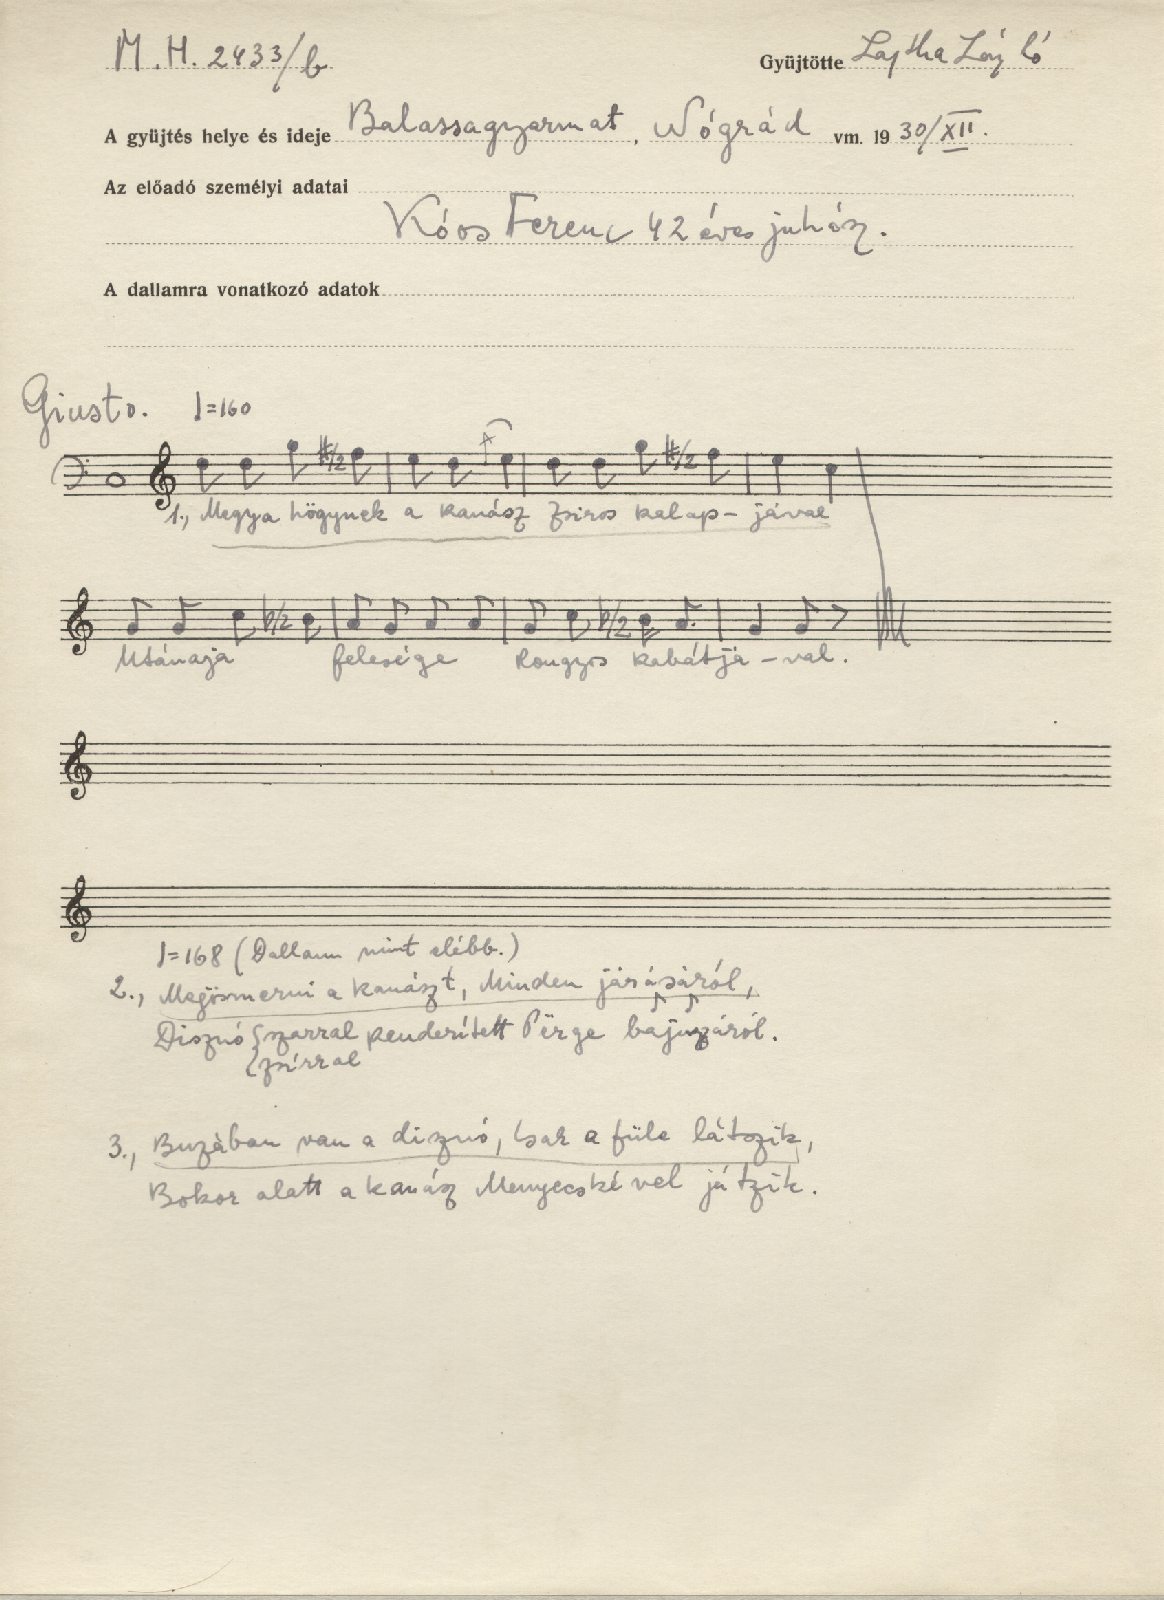 M.H. 2433/b
Gyüjtötte Lajtha László
A gyüjtés helye és ideje Balassagyarmat, Nógrád vm. 1930/XII.
Az előadó személyi adatai
Kóos Ferenc 42 éves juhász.
A dallamra vonatkozó adatok
Giusto. ♩=160
1., Megya högynek a kanász Zsiros kalap-jával
Utánaja felesége Rongyos kabátjá-val.
♩=168 (Dallam mint elébb.)
2., Megösmerni a kanászt, Minden járásáról,
Disznó {szarral penderített Përge bajuzáról.
{zsírral
3., Buzában van a diznó, Csak a füle látszik,
Bokor alatt a kanász Menyecskével játzik.